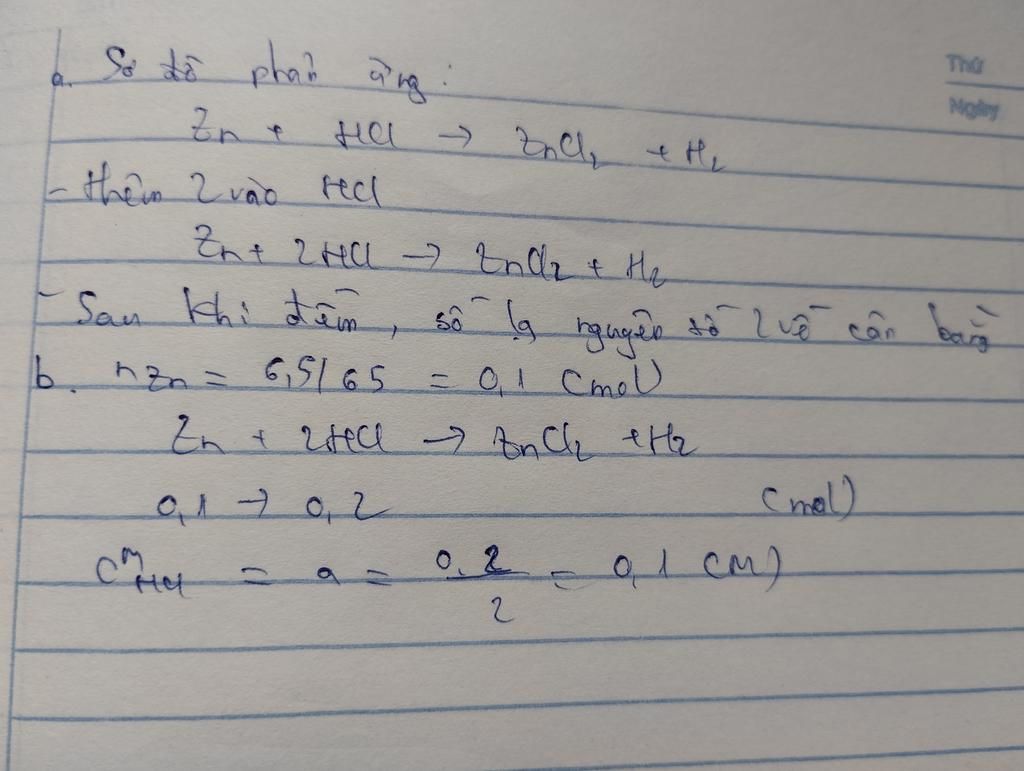 Thứ
Ngày
a. Sơ đồ phản ứng:
Zn + HCl → ZnCl₂ + H₂
- thêm 2 vào HCl
Zn + 2HCl → ZnCl₂ + H₂
- Sau khi đếm, số lg nguyên tố 2 vế cân bằng
b. nZn = 6,5/65 = 0,1 (mol)
Zn + 2HCl → ZnCl₂ + H₂
0,1 → 0,2 (mol)
CᴹHCl = a = 0,2/2 = 0,1 (M)